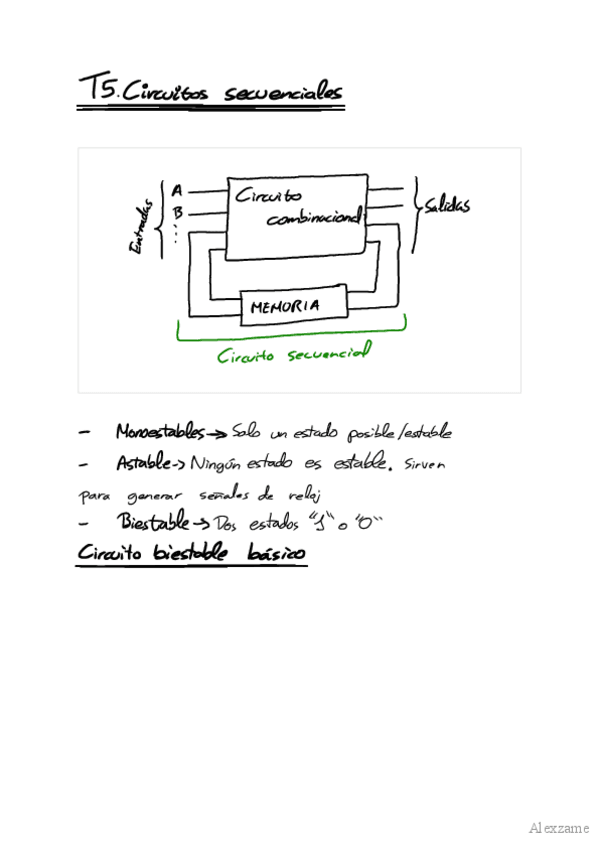 T5. Circuitos secuenciales
Entradas
A
B
Circuito
combinacional
Salidas
MEMORIA
Circuito secuencial
- Monoestables -> Solo un estado posible/estable
- Astable -> Ningún estado es estable. Sirven
para generar señales de reloj
- Biestable -> Dos estados "1" o "0"
Circuito biestable básico
Alexzame